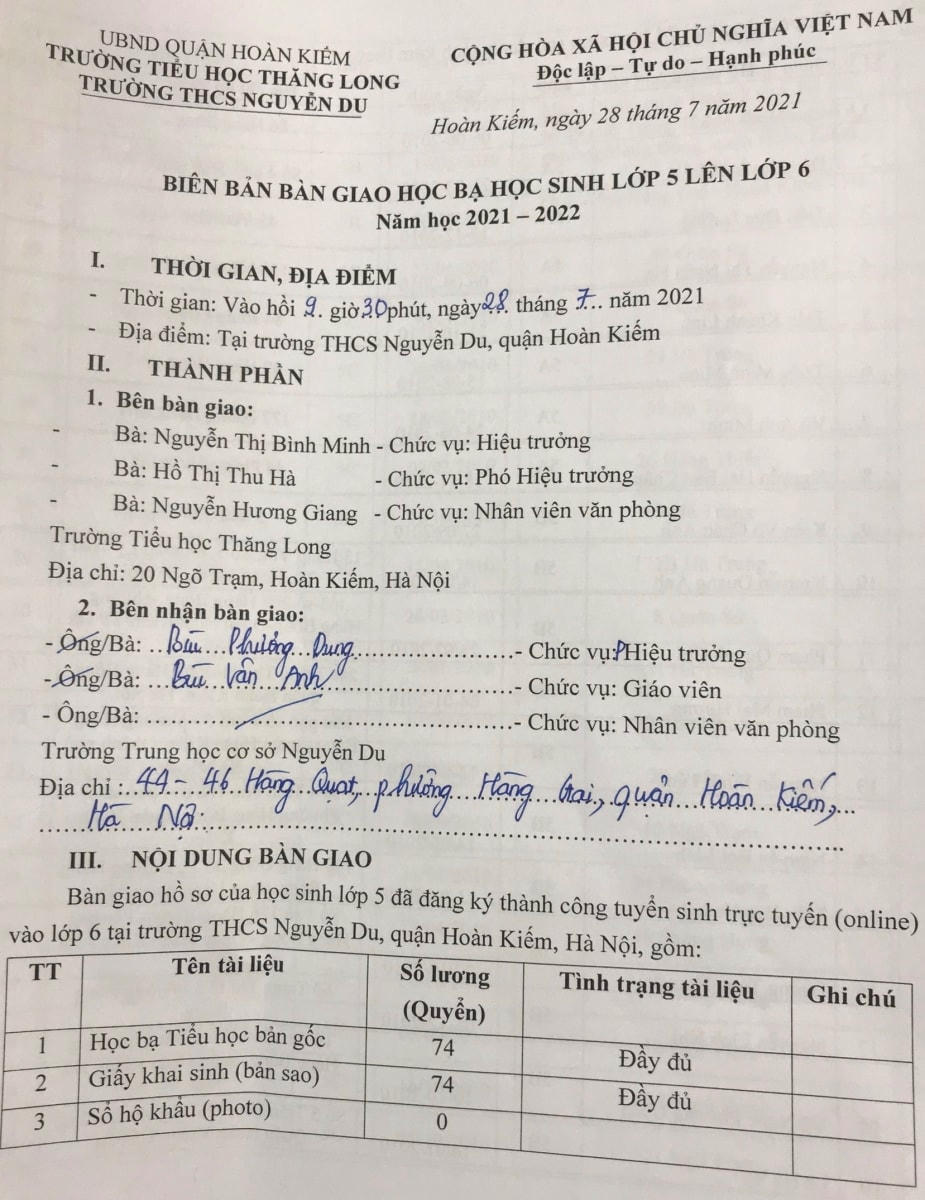 UBND QUẬN HOÀN KIẾM
TRƯỜNG TIỂU HỌC THĂNG LONG
TRƯỜNG THCS NGUYỄN DU
CỘNG HÒA XÃ HỘI CHỦ NGHĨA VIỆT NAM
Độc lập – Tự do – Hạnh phúc
Hoàn Kiếm, ngày 28 tháng 7 năm 2021
BIÊN BẢN BÀN GIAO HỌC BẠ HỌC SINH LỚP 5 LÊN LỚP 6
Năm học 2021 – 2022
I. THỜI GIAN, ĐỊA ĐIỂM
- Thời gian: Vào hồi 9. giờ 30 phút, ngày 28 tháng 7... năm 2021
- Địa điểm: Tại trường THCS Nguyễn Du, quận Hoàn Kiếm
II. THÀNH PHẦN
1. Bên bàn giao:
- Bà: Nguyễn Thị Bình Minh - Chức vụ: Hiệu trưởng
- Bà: Hồ Thị Thu Hà - Chức vụ: Phó Hiệu trưởng
- Bà: Nguyễn Hương Giang - Chức vụ: Nhân viên văn phòng
Trường Tiểu học Thăng Long
Địa chỉ: 20 Ngõ Trạm, Hoàn Kiếm, Hà Nội
2. Bên nhận bàn giao:
- Ông/Bà: Bùi Phương Dung - Chức vụ: P Hiệu trưởng
- Ông/Bà: Bùi Vân Anh - Chức vụ: Giáo viên
- Ông/Bà: - Chức vụ: Nhân viên văn phòng
Trường Trung học cơ sở Nguyễn Du
Địa chỉ : 44 - 46 Hàng Quạt, phường Hàng Gai, quận Hoàn Kiếm,
Hà Nội.
III. NỘI DUNG BÀN GIAO
Bàn giao hồ sơ của học sinh lớp 5 đã đăng ký thành công tuyển sinh trực tuyến (online)
vào lớp 6 tại trường THCS Nguyễn Du, quận Hoàn Kiếm, Hà Nội, gồm:
TT Tên tài liệu Số lương (Quyển) Tình trạng tài liệu Ghi chú
1 Học bạ Tiểu học bản gốc 74 Đầy đủ
2 Giấy khai sinh (bản sao) 74 Đầy đủ
3 Sổ hộ khẩu (photo) 0